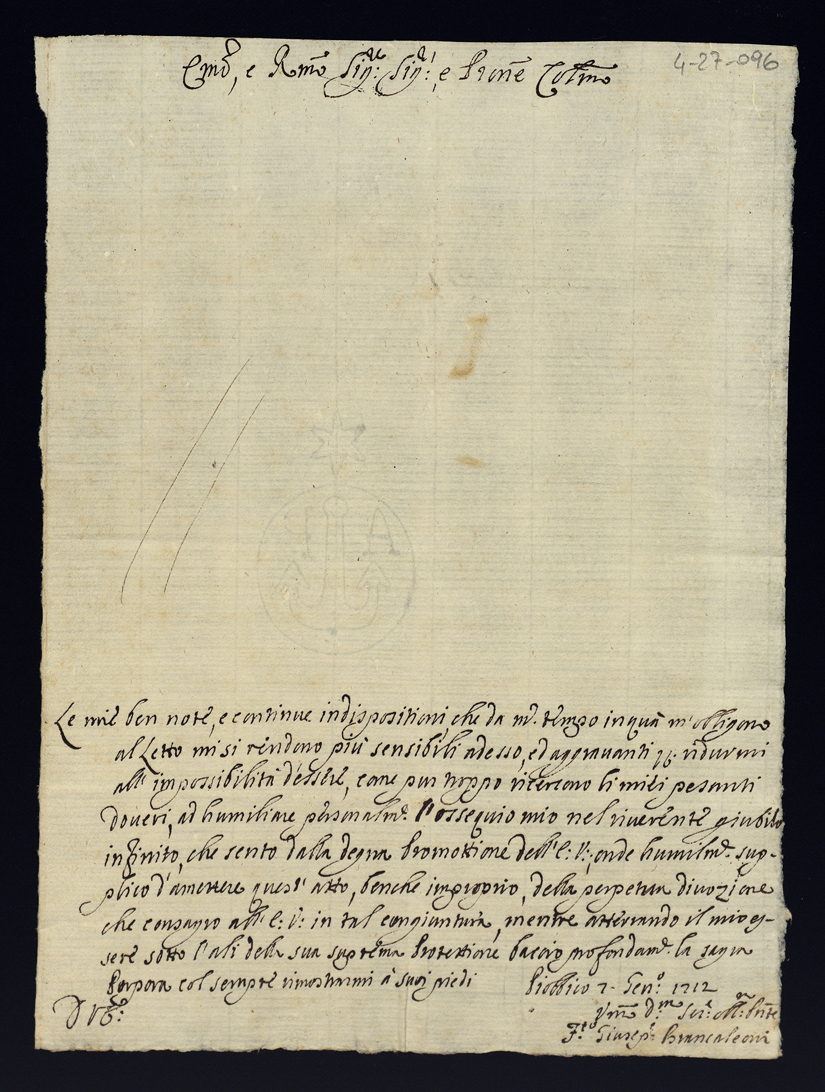 4-27-096
Emo, e Rmo Sigre: Sigr: e Prone Colmo
Le mie ben note, e continue indispositioni che da m.to tempo in quà m'obligono
al Letto mi si rendono più sensibili adesso, ed aggravanti p. ridurmi
all'impossibilità d'essere, come pur troppo ricercano li miei pesanti
doveri, ad humiliare personalm.te l'ossequio mio nel riverente giubilo
infinito, che sento dalla degna Promottione dell'E: V: onde humilm.te sup-
plico d'amettere quest'atto, benche improprio, della perpetua divozione
che consagro all'E: V: in tal congiuntura, mentre atterrando il mio es-
sere sotto l'ali della sua suprema Protettione baccio profondam.te la sagra
Porpora col sempre rimostrarmi à suoi piedi
Piobbico 7. Gen.o 1712
D V E:
Vmo D.mo Ser.e Obl:mo
Giusep.e Brancaleoni